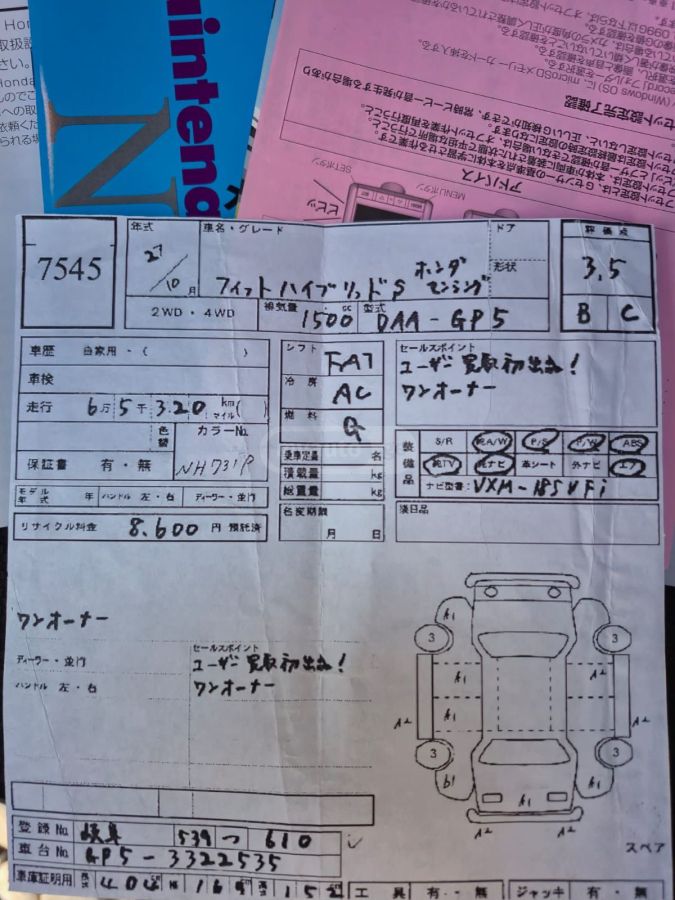 Hon
取扱説
さい。
Honda
ものでこ
への取
依頼くだ
られる場
N
intena
アドバイス
SETボタン
MENUボタン
ピピッ
セット設定完了確認
7545
年式
27/10月
車名・グレード
フィットハイブリッドS ホンダセンシング
ドア
形状
評価点
3.5
B C
2WD・4WD
排気量
1500cc
型式
DAA-GP5
車歴 自家用・( )
車検
走行 6万5千320km マイル( )
色替
カラーNo.
NH731P
保証書 有・無
モデル年式 年 ハンドル 左・右 ディーラー・並行
リサイクル料金 8.600円 預託済
シフト FAT
冷房 AC
燃料 G
乗車定員 名
積載量 kg
総重量 kg
名変期限
月 日
セールスポイント
ユーザー買取初出品!
ワンオーナー
装備品
S/R 純A/W P/S P/W ABS
純TV 純ナビ 革シート 外ナビ エア
ナビ型番: VXM-185VFi
後日品
ワンオーナー
ディーラー・並行
ハンドル 左・右
セールスポイント
ユーザー買取初出品!
ワンオーナー
A1
3 3
A1 A2
A2 A1 A2
3 3
b1 A1
A1
A2 A2
スペア
登録No. 岐阜 539 つ 610
車台No. GP5-3322535
車庫証明用
工具 有・無 ジャッキ 有・無